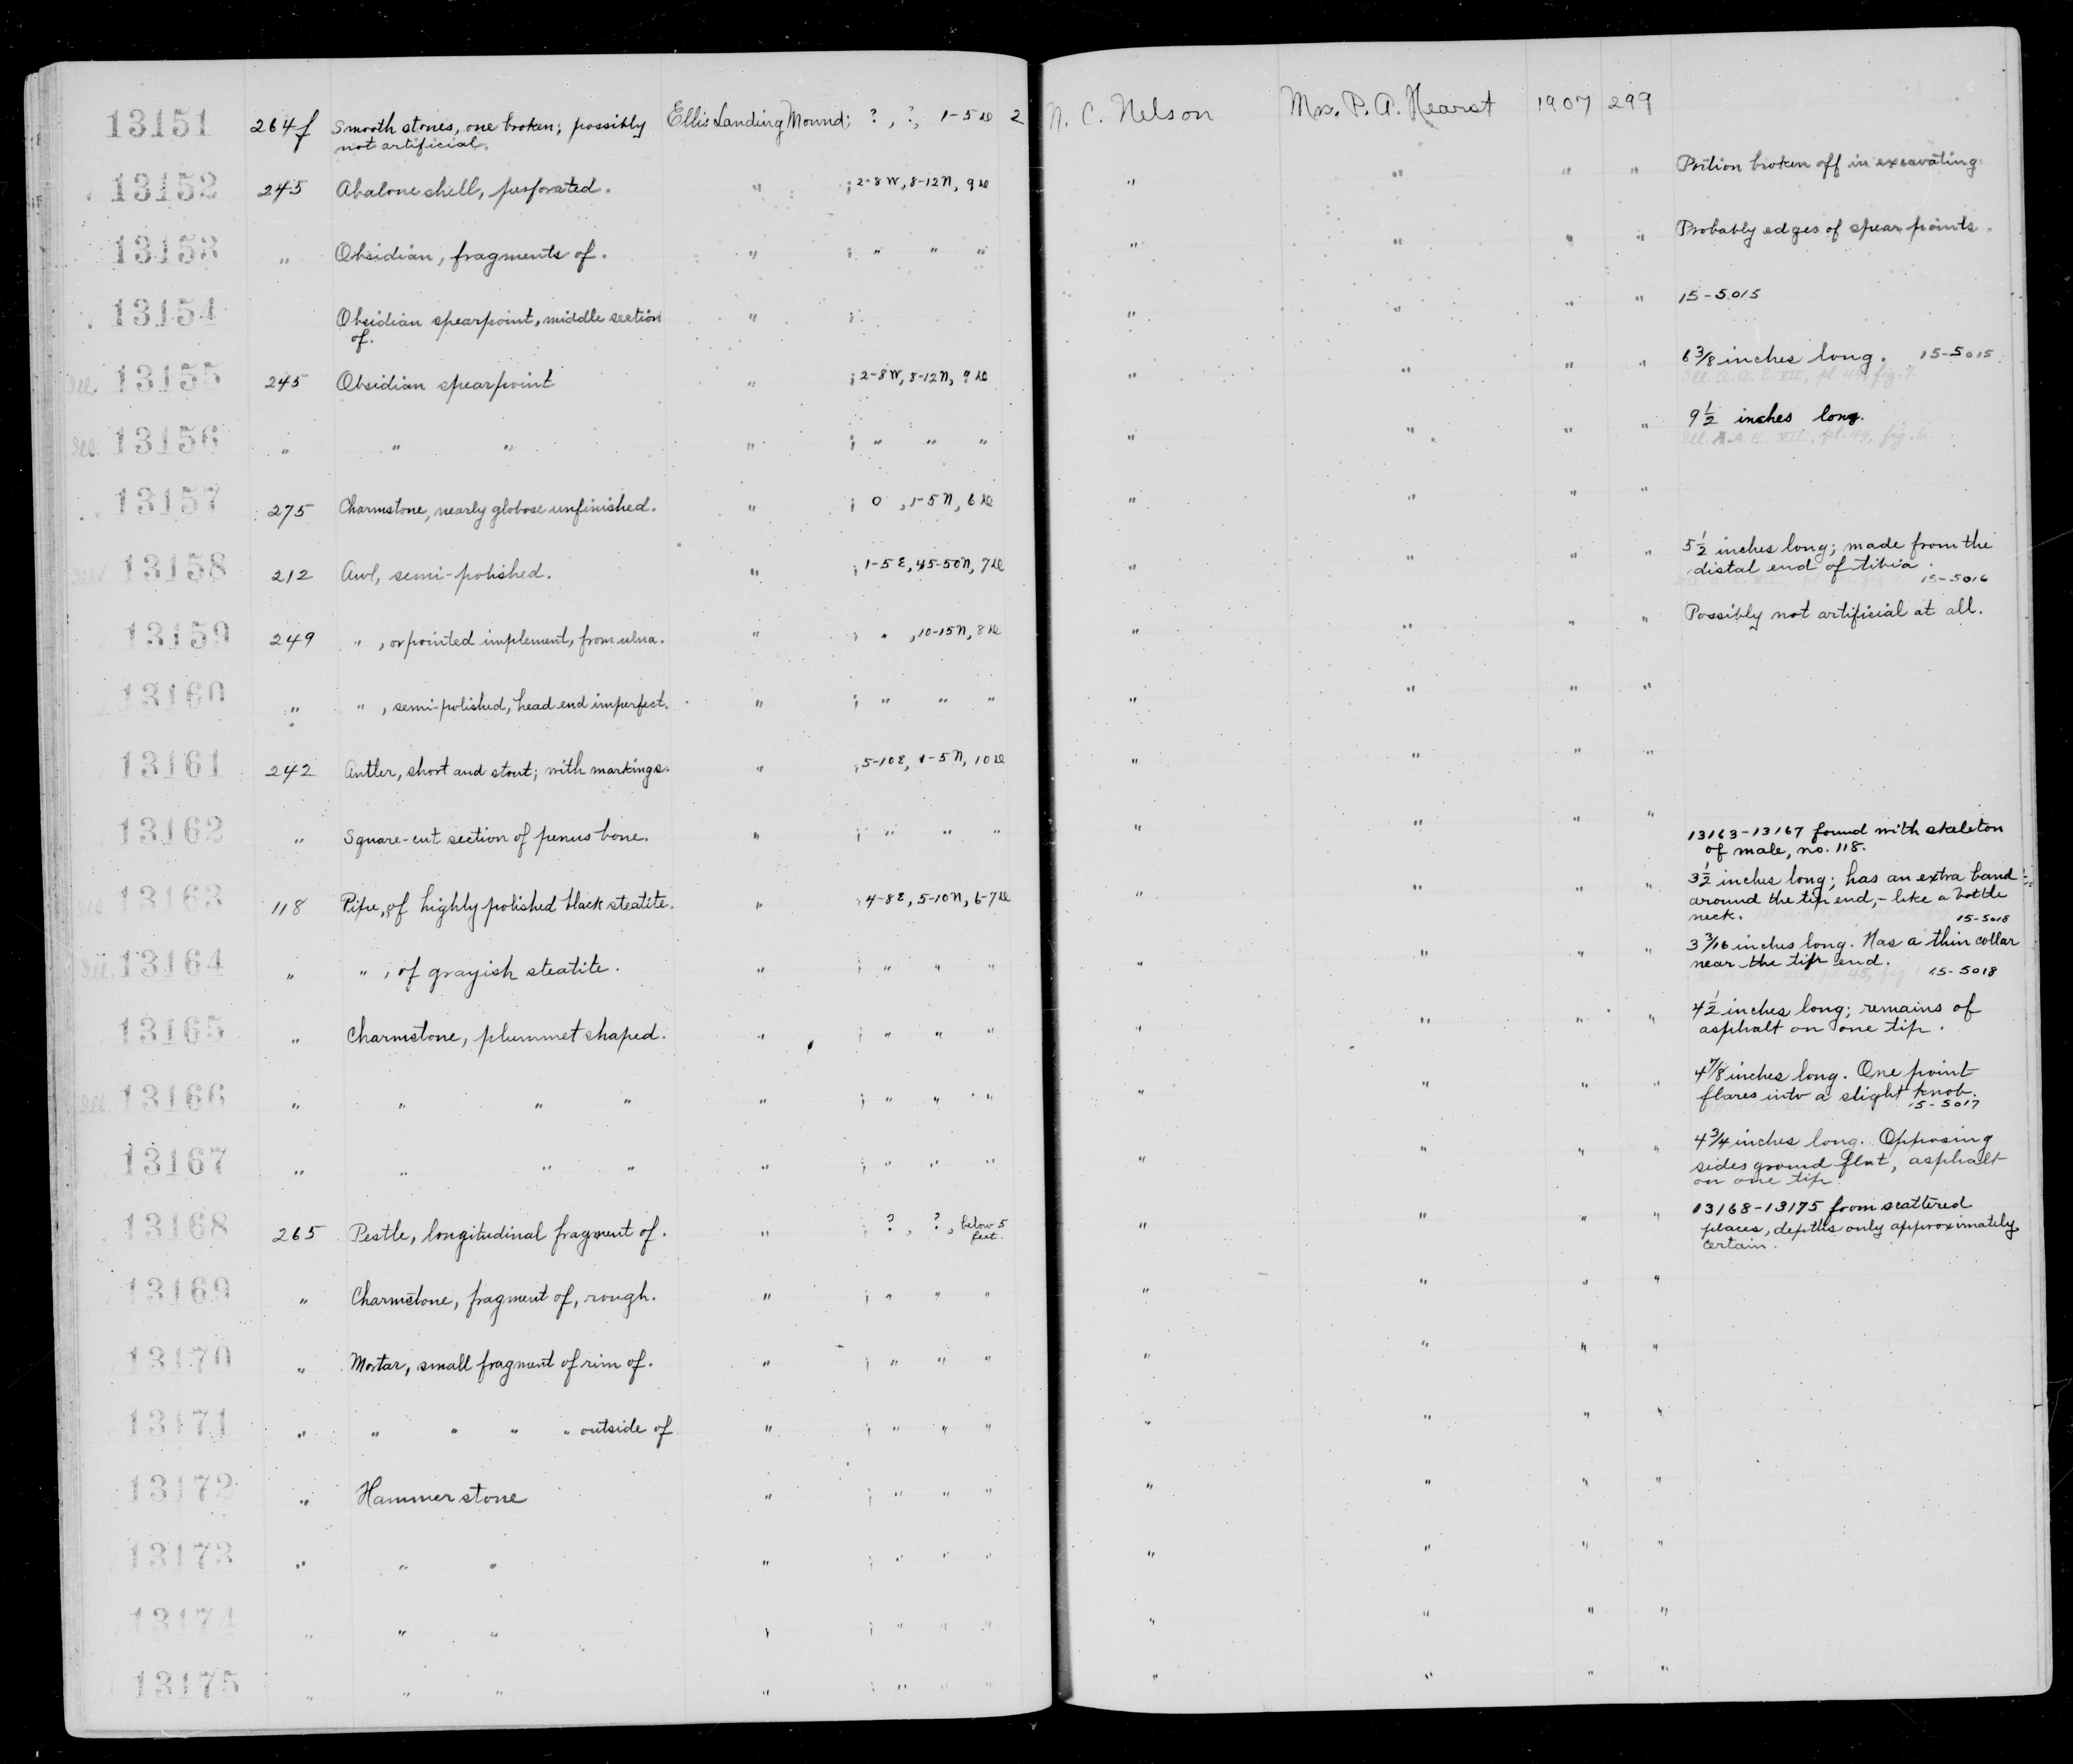 13151 264f Smooth stones, one broken; possibly Ellis Landing Mound; ?, ?, 1-5 D 2 N. C. Nelson Mrs. P. A. Hearst 1907 299
not artificial.
13152 245 Abalone shell, perforated. " ; 2-8 W, 8-12 N, 9 D " " " " Portion broken off in excavating
13153 " Obsidian, fragments of. " ; " " " " " " " Probably edges of spear points.
13154 Obsidian spearpoint, middle section " ; " " " " 15-5015
of.
Ill. 13155 245 Obsidian spearpoint " ; 2-8 W, 8-12 N, 9 D " " " " 6 3/8 inches long. 15-5015
Ill. A.A.E. VII, pl. 44, fig. 7.
Ill. 13156 " " " " ; " " " " " " " 9 1/2 inches long.
Ill. A.A.E. VII, pl. 44, fig. 6.
13157 275 Charmstone, nearly globose unfinished. " ; 0, 1-5 N, 6 D " " " "
Ill. 13158 212 Awl, semi-polished. " ; 1-5 E, 45-50 N, 7 D " " " " 5 1/2 inches long; made from the
distal end of tibia.
15-5016
13159 249 ", or pointed implement, from ulna. " ; ", 10-15 N, 8 D " " " " Possibly not artificial at all.
13160 " ", semi-polished, head end imperfect. " ; " " " " " " "
13161 242 Antler, short and stout; with markings. " ; 5-10 E, 1-5 N, 10 D " " " "
13162 " Square-cut section of penus bone. " ; " " " " " " " 13163-13167 found with skeleton
of male, no. 118.
Ill. 13163 118 Pipe, of highly polished black steatite. " ; 4-8 E, 5-10 N, 6-7 D " " " " 3 1/2 inches long; has an extra band
around the tip end,- like a bottle
neck. 15-5018
Ill. 13164 " ", of grayish steatite. " ; " " " " " " " 3 3/16 inches long. Has a thin collar
near the tip end. 15-5018
13165 " Charmstone, plummet shaped. " ; " " " " " " " 4 1/2 inches long; remains of
asphalt on one tip.
Ill 13166 " " " " " ; " " " " " " " 4 7/8 inches long. One point
flares into a slight knob.
15-5017
13167 " " " " " ; " " " " " " " 4 3/4 inches long. Opposing
sides ground flat, asphalt
on one tip.
13168 265 Pestle, longitudinal fragment of. " ; ?, ?, below 5 feet. " " " " 13168-13175 from scattered
places, depths only approximately
certain.
13169 " Charmstone, fragment of, rough. " ; " " " " " " "
13170 " Mortar, small fragment of rim of. " ; " " " " " " "
13171 " " " " " outside of " ; " " " " " " "
13172 " Hammerstone " ; " " " " " " "
13173 " " " " ; " " " " " " "
13174 " " " " ; " " " " " " "
13175 " " " " ; " " " " " " "